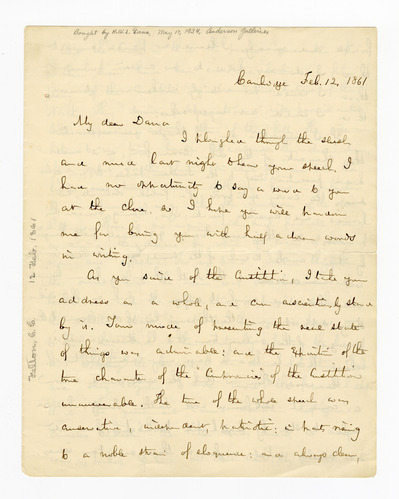 Bought by H.W.L. Dana, May 17, 1939, Anderson Galleries
Cambridge Feb. 12, 1861
My dear Dana
I ploughed through the slush
and mud last night to hear your speech. I
had no opportunity to say a word to you
at the close, so I hope you will pardon
me for boring you with half a dozen words
in writing.
As you said of the Constitution, I take your
address as a whole, and can conscientiously stand
by it. Your mode of presenting the real state
of things was admirable; and the exposition of the
true character of the of the Constitution
unanswerable. The tone of the whole speech was
conservative, independent, patriotic; in parts rising
to a noble strain of eloquence; and always clear,
Felton, C.C. 12 Feb. 1861